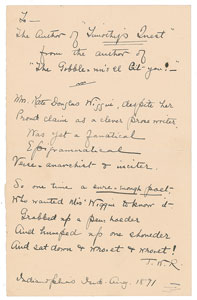 To—
The Author of "Timothy's Quest"
from the author of
"The Gobble-uns 'el Git-you!"—
Mrs. Kate Douglas Wiggin, despite her
Proud claim as a clever prose writer
Was yet a fanatical
Epigrammatical
Verse-anarchist & inciter.
So one time a sure-enough poet—
Who wanted Mrs Wiggin to know it—
Grabbed up a pen-hoeder
And humped up one shoeder
And sat down & wroeet & wroeet!
J. W. R
Indianapolis Ind. Aug. 1891